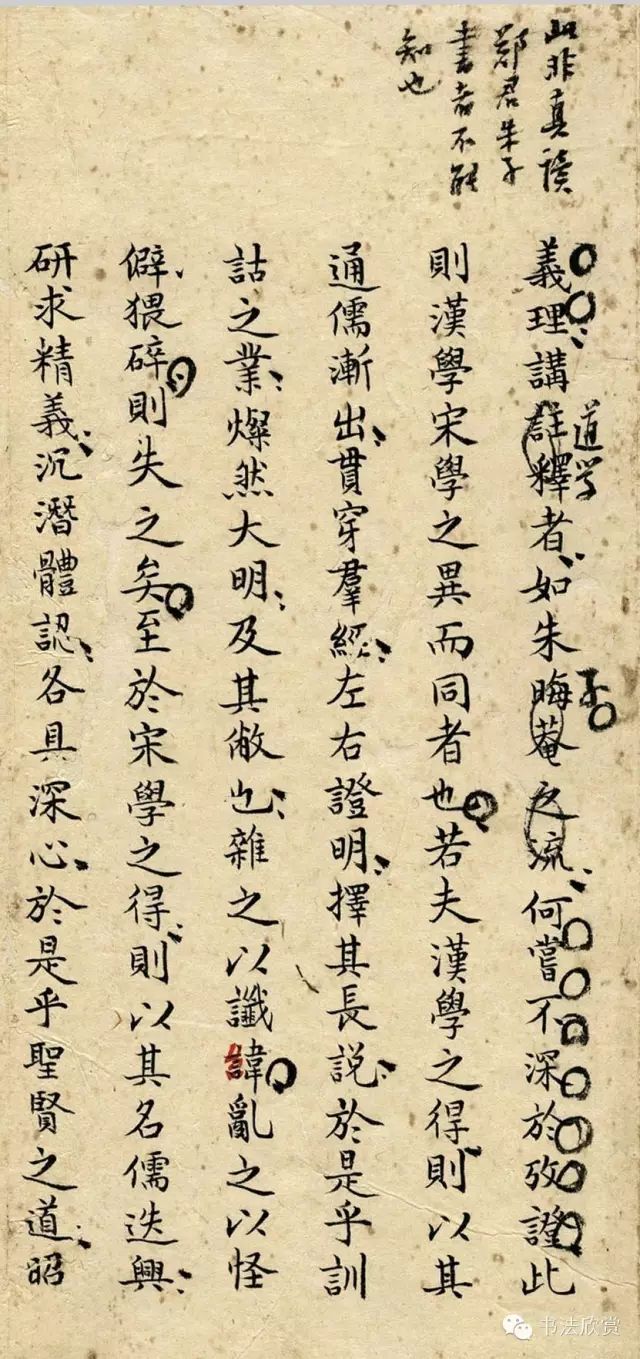 此非真讀
鄭君朱子
書者不能
知也
義理講註釋者如朱晦菴之流何嘗不深於攷證此
道学
子
則漢學宋學之異而同者也若夫漢學之得則以其
通儒漸出貫穿羣經左右證明擇其長説於是乎訓
詁之業燦然大明及其敝也雜之以讖諱亂之以怪
僻猥碎則失之矣至於宋學之得則以其名儒迭興
研求精義沉潛體認各具深心於是乎聖賢之道昭
书法欣赏